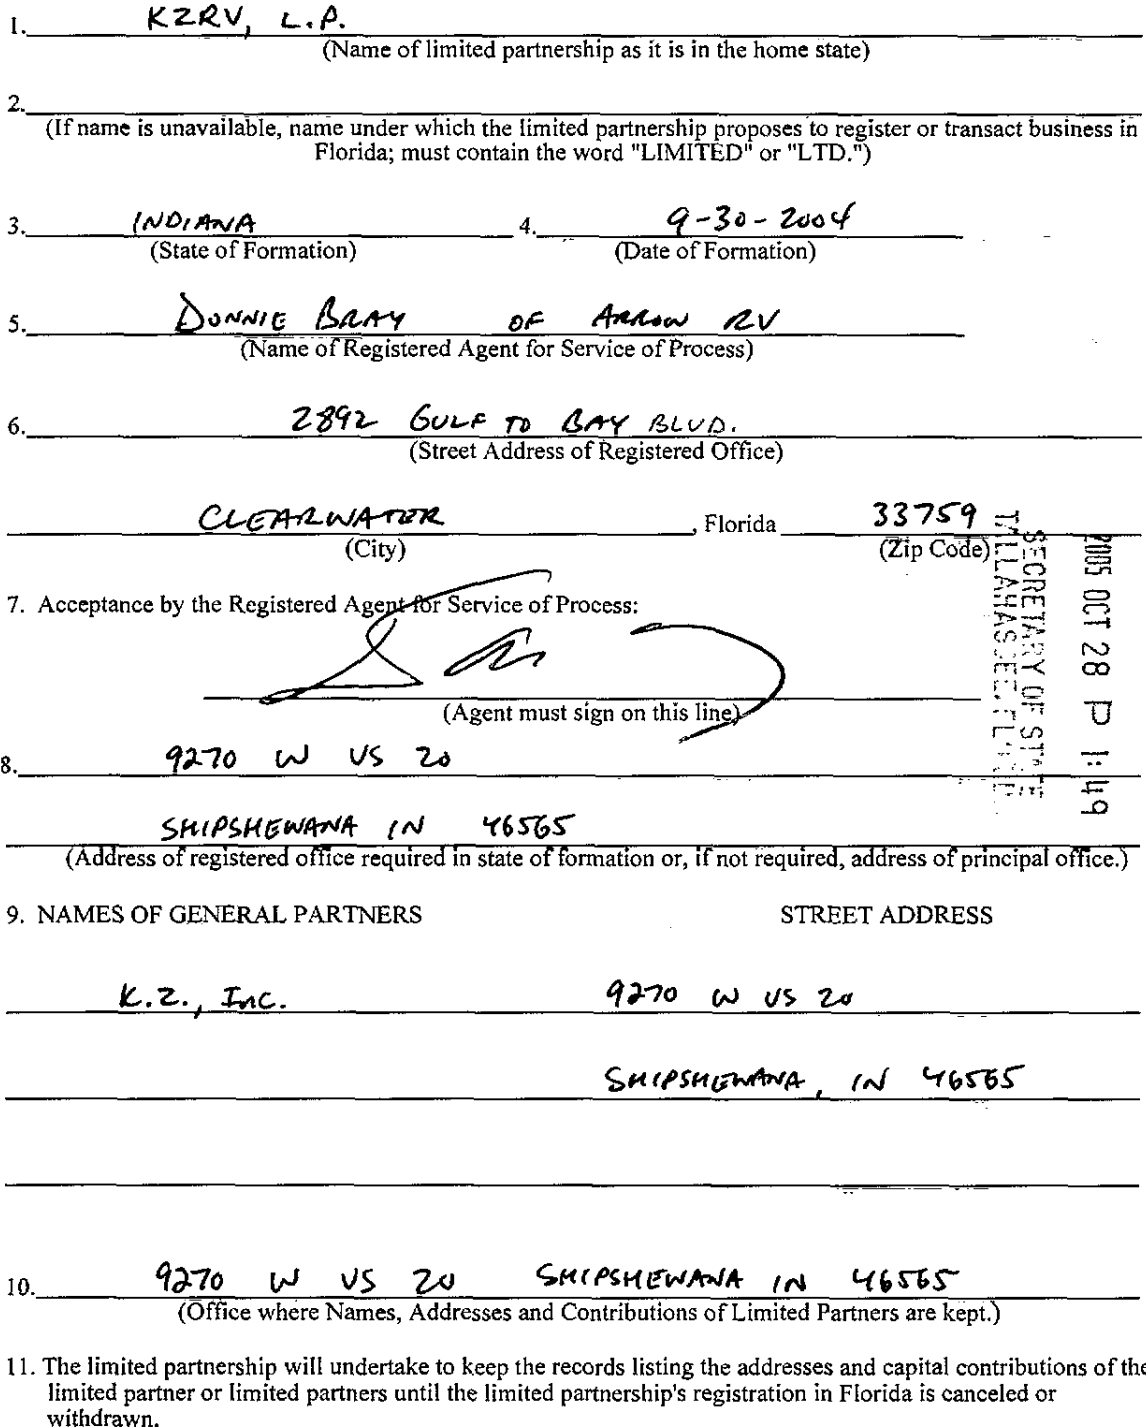 1. KZRV, L.P.
(Name of limited partnership as it is in the home state)
2.
(If name is unavailable, name under which the limited partnership proposes to register or transact business in
Florida; must contain the word "LIMITED" or "LTD.")
3. INDIANA 4. 9-30-2004
(State of Formation) (Date of Formation)
5. DONNIE BRAY OF ARROW RV
(Name of Registered Agent for Service of Process)
6. 2892 GULF TO BAY BLVD.
(Street Address of Registered Office)
CLEARWATER, Florida 33759
(City) (Zip Code)
7. Acceptance by the Registered Agent for Service of Process:
(Agent must sign on this line)
2005 OCT 28 P 1:49
SECRETARY OF STATE
TALLAHASSEE, FLORIDA
8. 9270 W US 20
SHIPSHEWANA IN 46565
(Address of registered office required in state of formation or, if not required, address of principal office.)
9. NAMES OF GENERAL PARTNERS STREET ADDRESS
K.Z., Inc. 9270 W US 20
SHIPSHEWANA, IN 46565
10. 9270 W US 20 SHIPSHEWANA IN 46565
(Office where Names, Addresses and Contributions of Limited Partners are kept.)
11. The limited partnership will undertake to keep the records listing the addresses and capital contributions of the
limited partner or limited partners until the limited partnership's registration in Florida is canceled or
withdrawn.